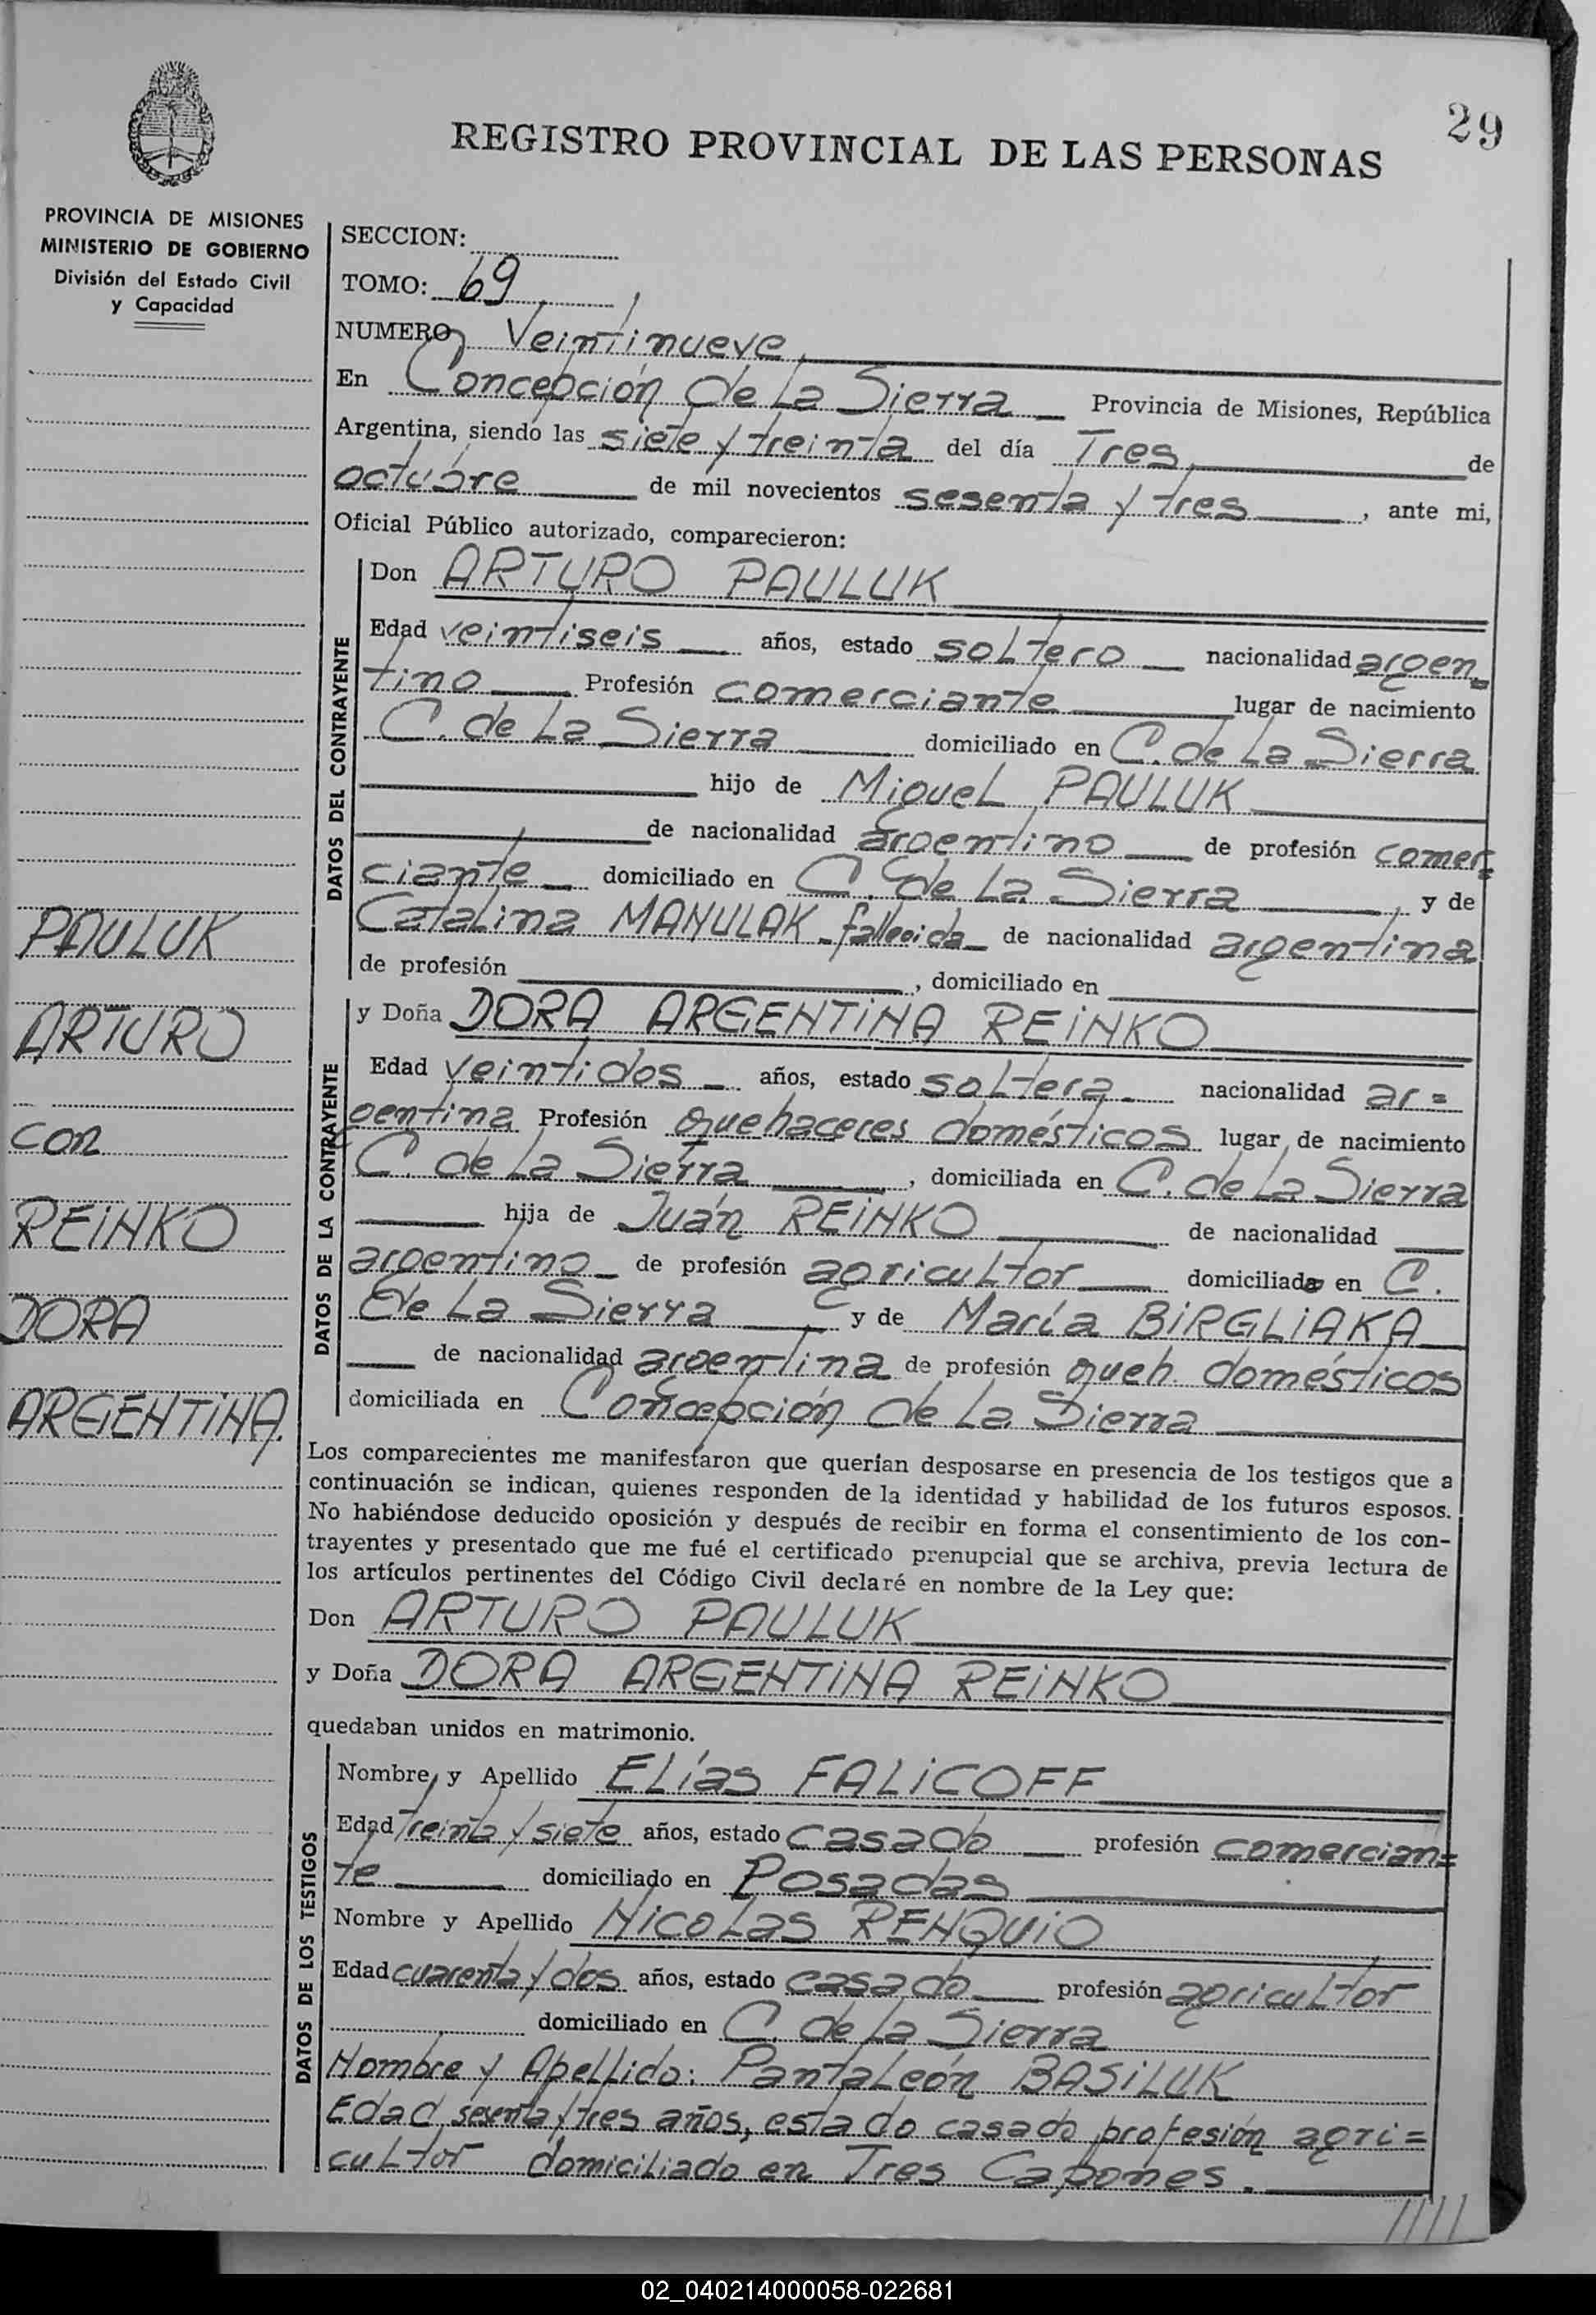 29
REGISTRO PROVINCIAL DE LAS PERSONAS
PROVINCIA DE MISIONES
MINISTERIO DE GOBIERNO
División del Estado Civil
y Capacidad
SECCION:
TOMO: 69
NUMERO Veintinueve
En Concepción de La Sierra Provincia de Misiones, República
Argentina, siendo las siete y treinta del día Tres de
octubre de mil novecientos sesenta y tres, ante mi,
Oficial Público autorizado, comparecieron:
DATOS DEL CONTRAYENTE
Don ARTURO PAULUK
Edad veintiseis años, estado soltero nacionalidad argen=
tino Profesión comerciante lugar de nacimiento
C. de La Sierra domiciliado en C. de La Sierra
hijo de Miguel PAULUK
de nacionalidad argentino de profesión comer=
ciante domiciliado en C. de La Sierra, y de
Catalina MANULAK - fallecida - de nacionalidad argentina
de profesión , domiciliado en
DATOS DE LA CONTRAYENTE
y Doña DORA ARGENTINA REINKO
Edad veintidos años, estado soltera nacionalidad ar=
gentina Profesión quehaceres domésticos lugar de nacimiento
C. de La Sierra, domiciliada en C. de La Sierra
hija de Juán REINKO de nacionalidad
argentino de profesión agricultor domiciliado en C.
de La Sierra y de María BIRGLIAKA
de nacionalidad argentina de profesión queh. domésticos
domiciliada en Concepción de La Sierra
PAULUK
ARTURO
con
REINKO
DORA
ARGENTINA.
Los comparecientes me manifestaron que querían desposarse en presencia de los testigos que a
continuación se indican, quienes responden de la identidad y habilidad de los futuros esposos.
No habiéndose deducido oposición y después de recibir en forma el consentimiento de los con-
trayentes y presentado que me fué el certificado prenupcial que se archiva, previa lectura de
los artículos pertinentes del Código Civil declaré en nombre de la Ley que:
Don ARTURO PAULUK
y Doña DORA ARGENTINA REINKO
quedaban unidos en matrimonio.
DATOS DE LOS TESTIGOS
Nombre y Apellido ELías FALICOFF
Edad Treinta y siete años, estado casado profesión comercian=
te domiciliado en Posadas
Nombre y Apellido Nicolas RENQUIO
Edad cuarenta y dos años, estado casado profesión agricultor
domiciliado en C. de La Sierra
Nombre y Apellido: Pantaleón BASILUK
Edad sesenta y tres años, estado casado, profesión agri=
cultor domiciliado en Tres Capones.
02_040214000058-022681